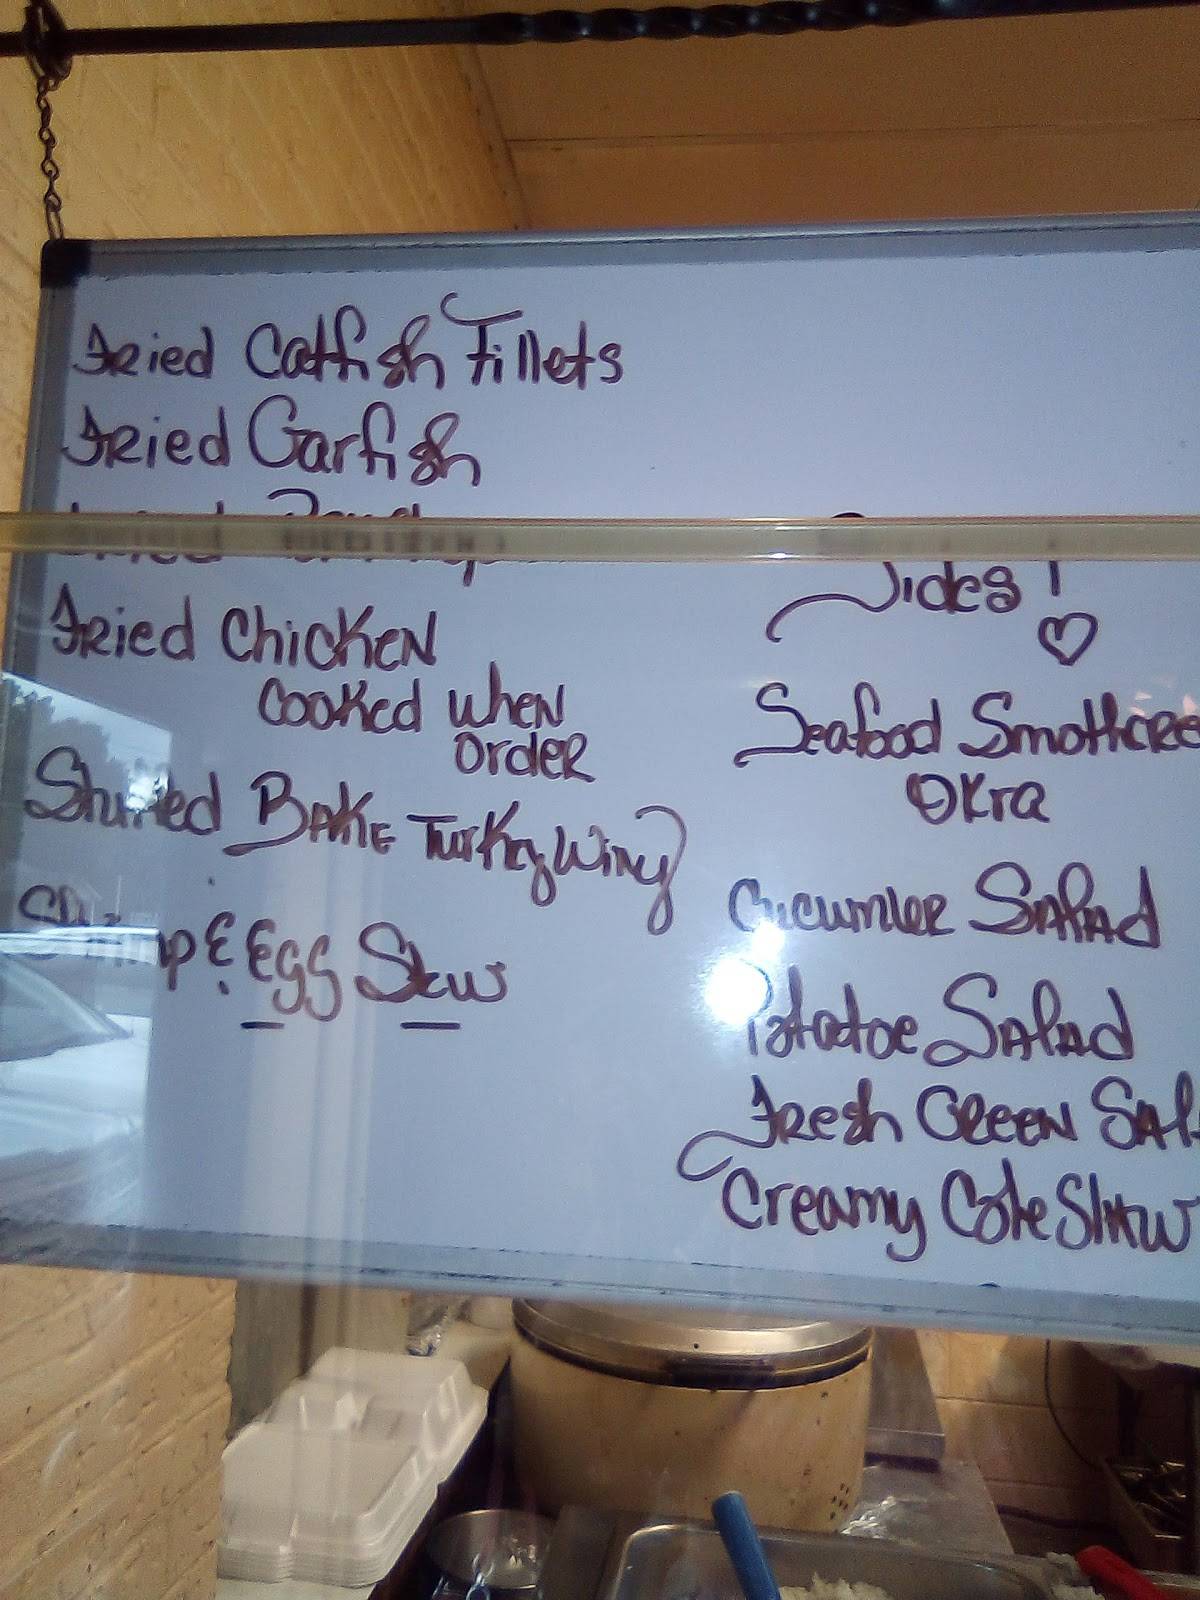 Fried Catfish Fillets
Fried Garfish
Fried
Fried Chicken
Cooked when
order
Stuffed Bake Turkey Wing
Shrimp & Egg Stew
Sides!
Seafood Smothere
Okra
Cucumber Salad
Potatoe Salad
Fresh Green Sal
Creamy Cole Slaw